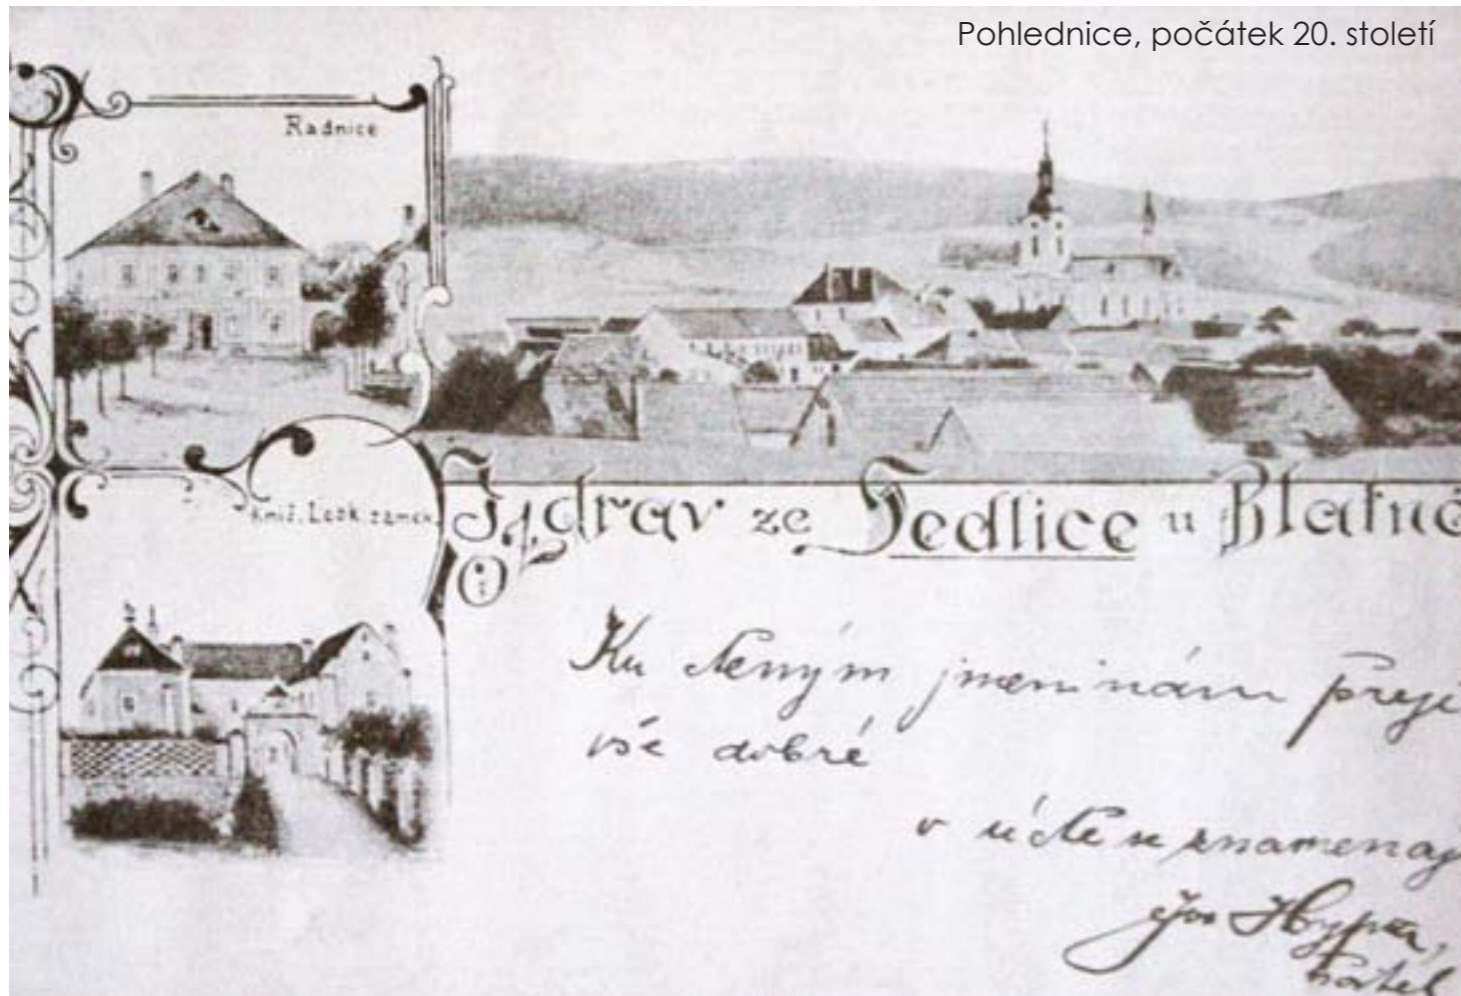 Pohlednice, počátek 20. století
Radnice
zámek
Pozdrav ze Sedlice u Blatné
Ku ctěným jmeninám přeji
vše dobré
v úctě se znamenaj
Jos